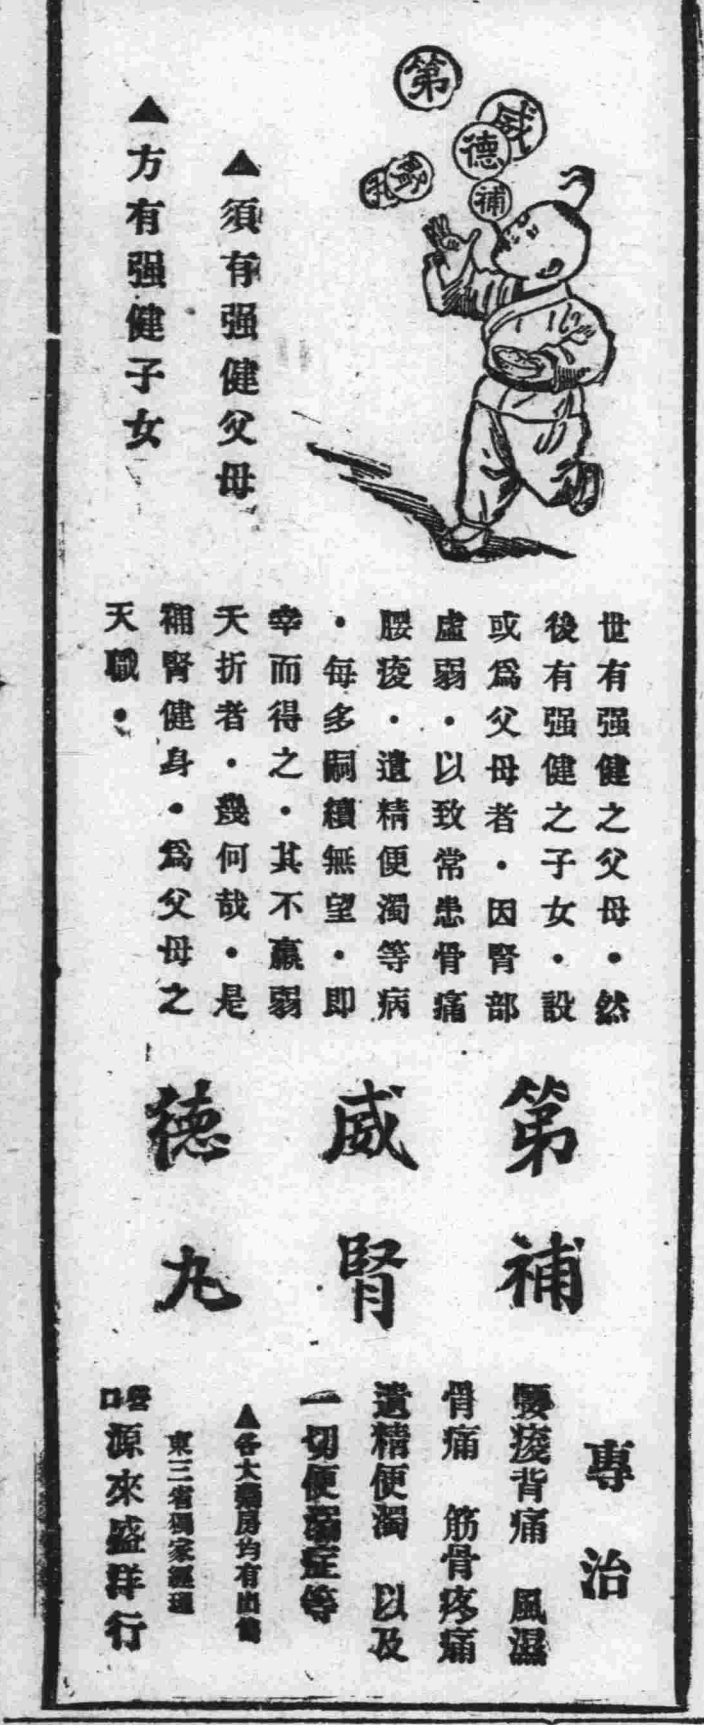 第
威
德
補
腎
丸
▲須有强健父母
▲方有强健子女
世有强健之父母・然
後有强健之子女・設
或爲父母者・因腎部
虛弱・以致常患骨痛
腰痠・遺精便濁等病
・每多嗣續無望・即
幸而得之・其不羸弱
夭折者・幾何哉・是
補腎健身・爲父母之
天職・
第威德
補腎丸
專治
腰痠背痛 風濕
骨痛 筋骨疼痛
遺精便濁 以及
一切便濁症等
▲各大藥房均有出售
東三省獨家經理
營口源來盛洋行